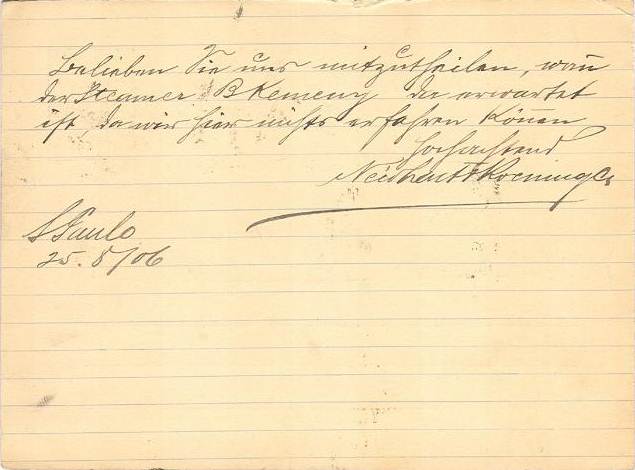 Belieben Sie uns mitzutheilen, wañ
der Steamer B Kemeny da erwartet
ist, da wir hier nichts erfahren könen
Hochachtend
S Paulo
25. 8/06